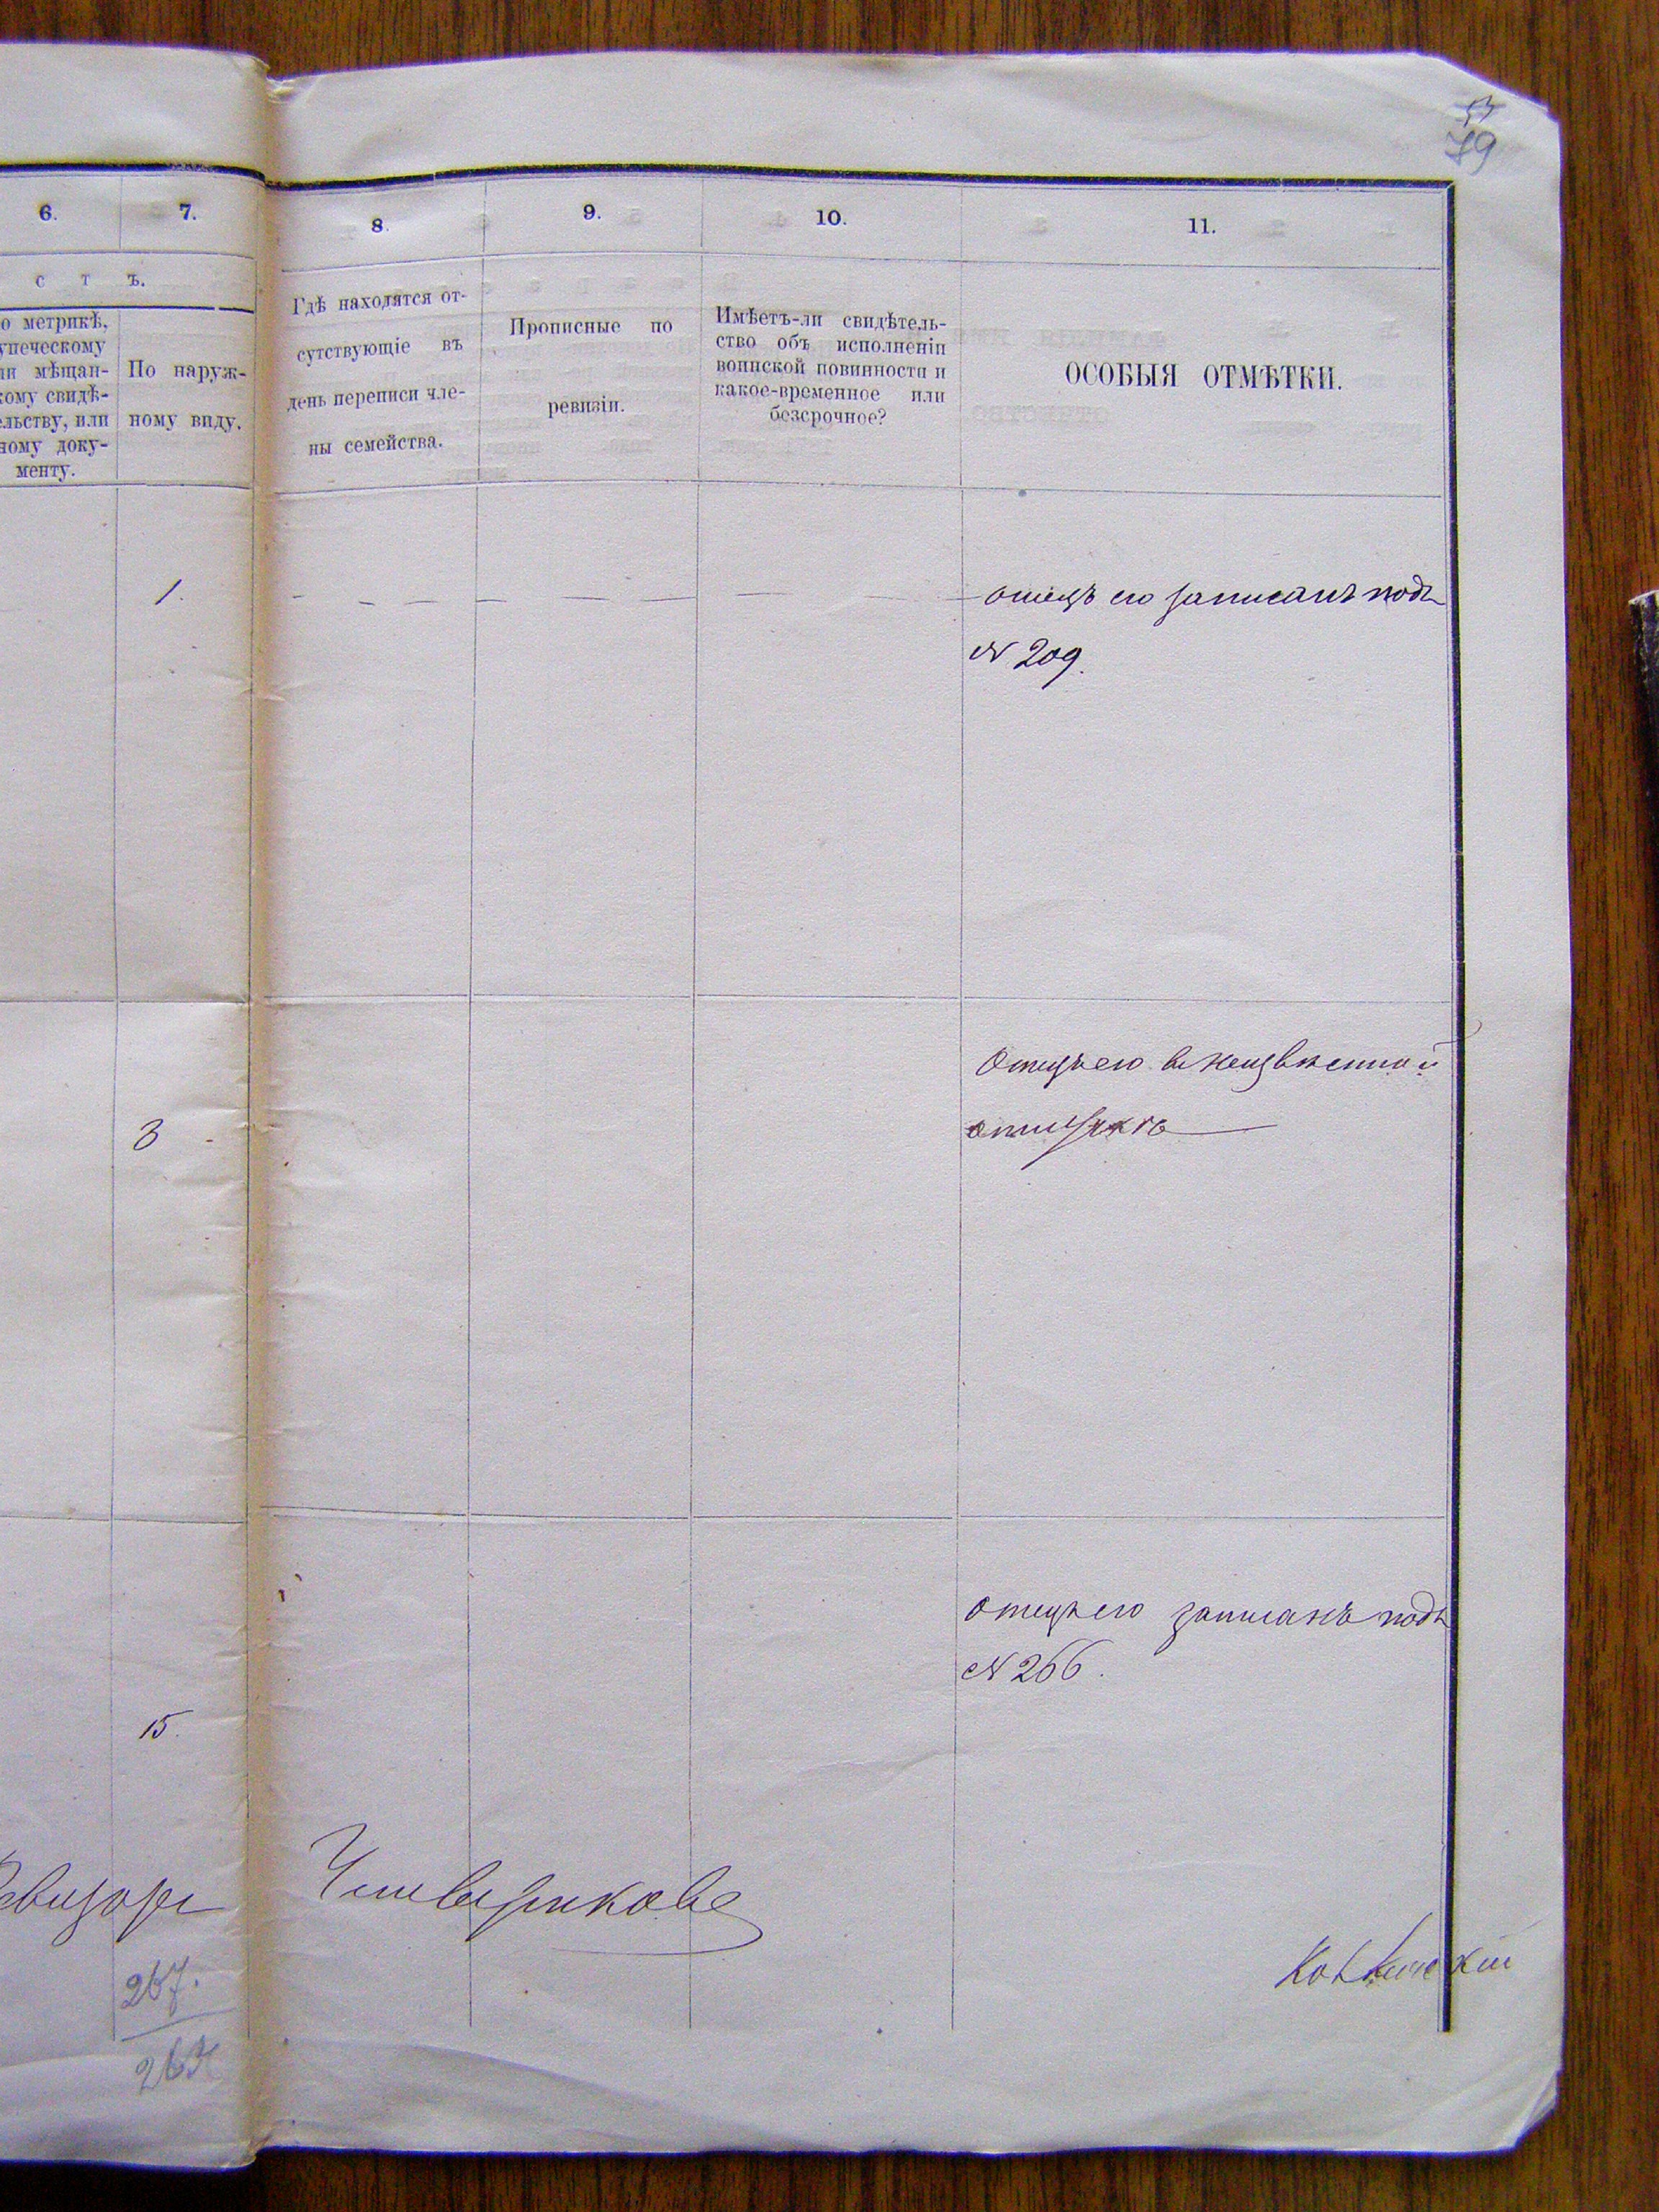 79
6.
7.
8.
9.
10.
11.
с т ъ.
о метрикѣ,
упеческому
ли мѣщан-
кому свидѣ-
ельству, или
ному доку-
менту.
По наруж-
ному виду.
Гдѣ находятся от-
сутствующіе въ
день переписи чле-
ны семейства.
Прописные по
ревизіи.
Имѣетъ-ли свидѣтель-
ство объ исполненіи
воинской повинности и
какое-временное или
безсрочное?
ОСОБЫЯ ОТМѢТКИ.
1.
отецъ его записанъ подъ
№ 209.
3
Отецъ его въ неизвѣстной
отлучкѣ
отецъ его записанъ подъ
№ 266.
15.
Ревизоръ Чтвериковъ
267.